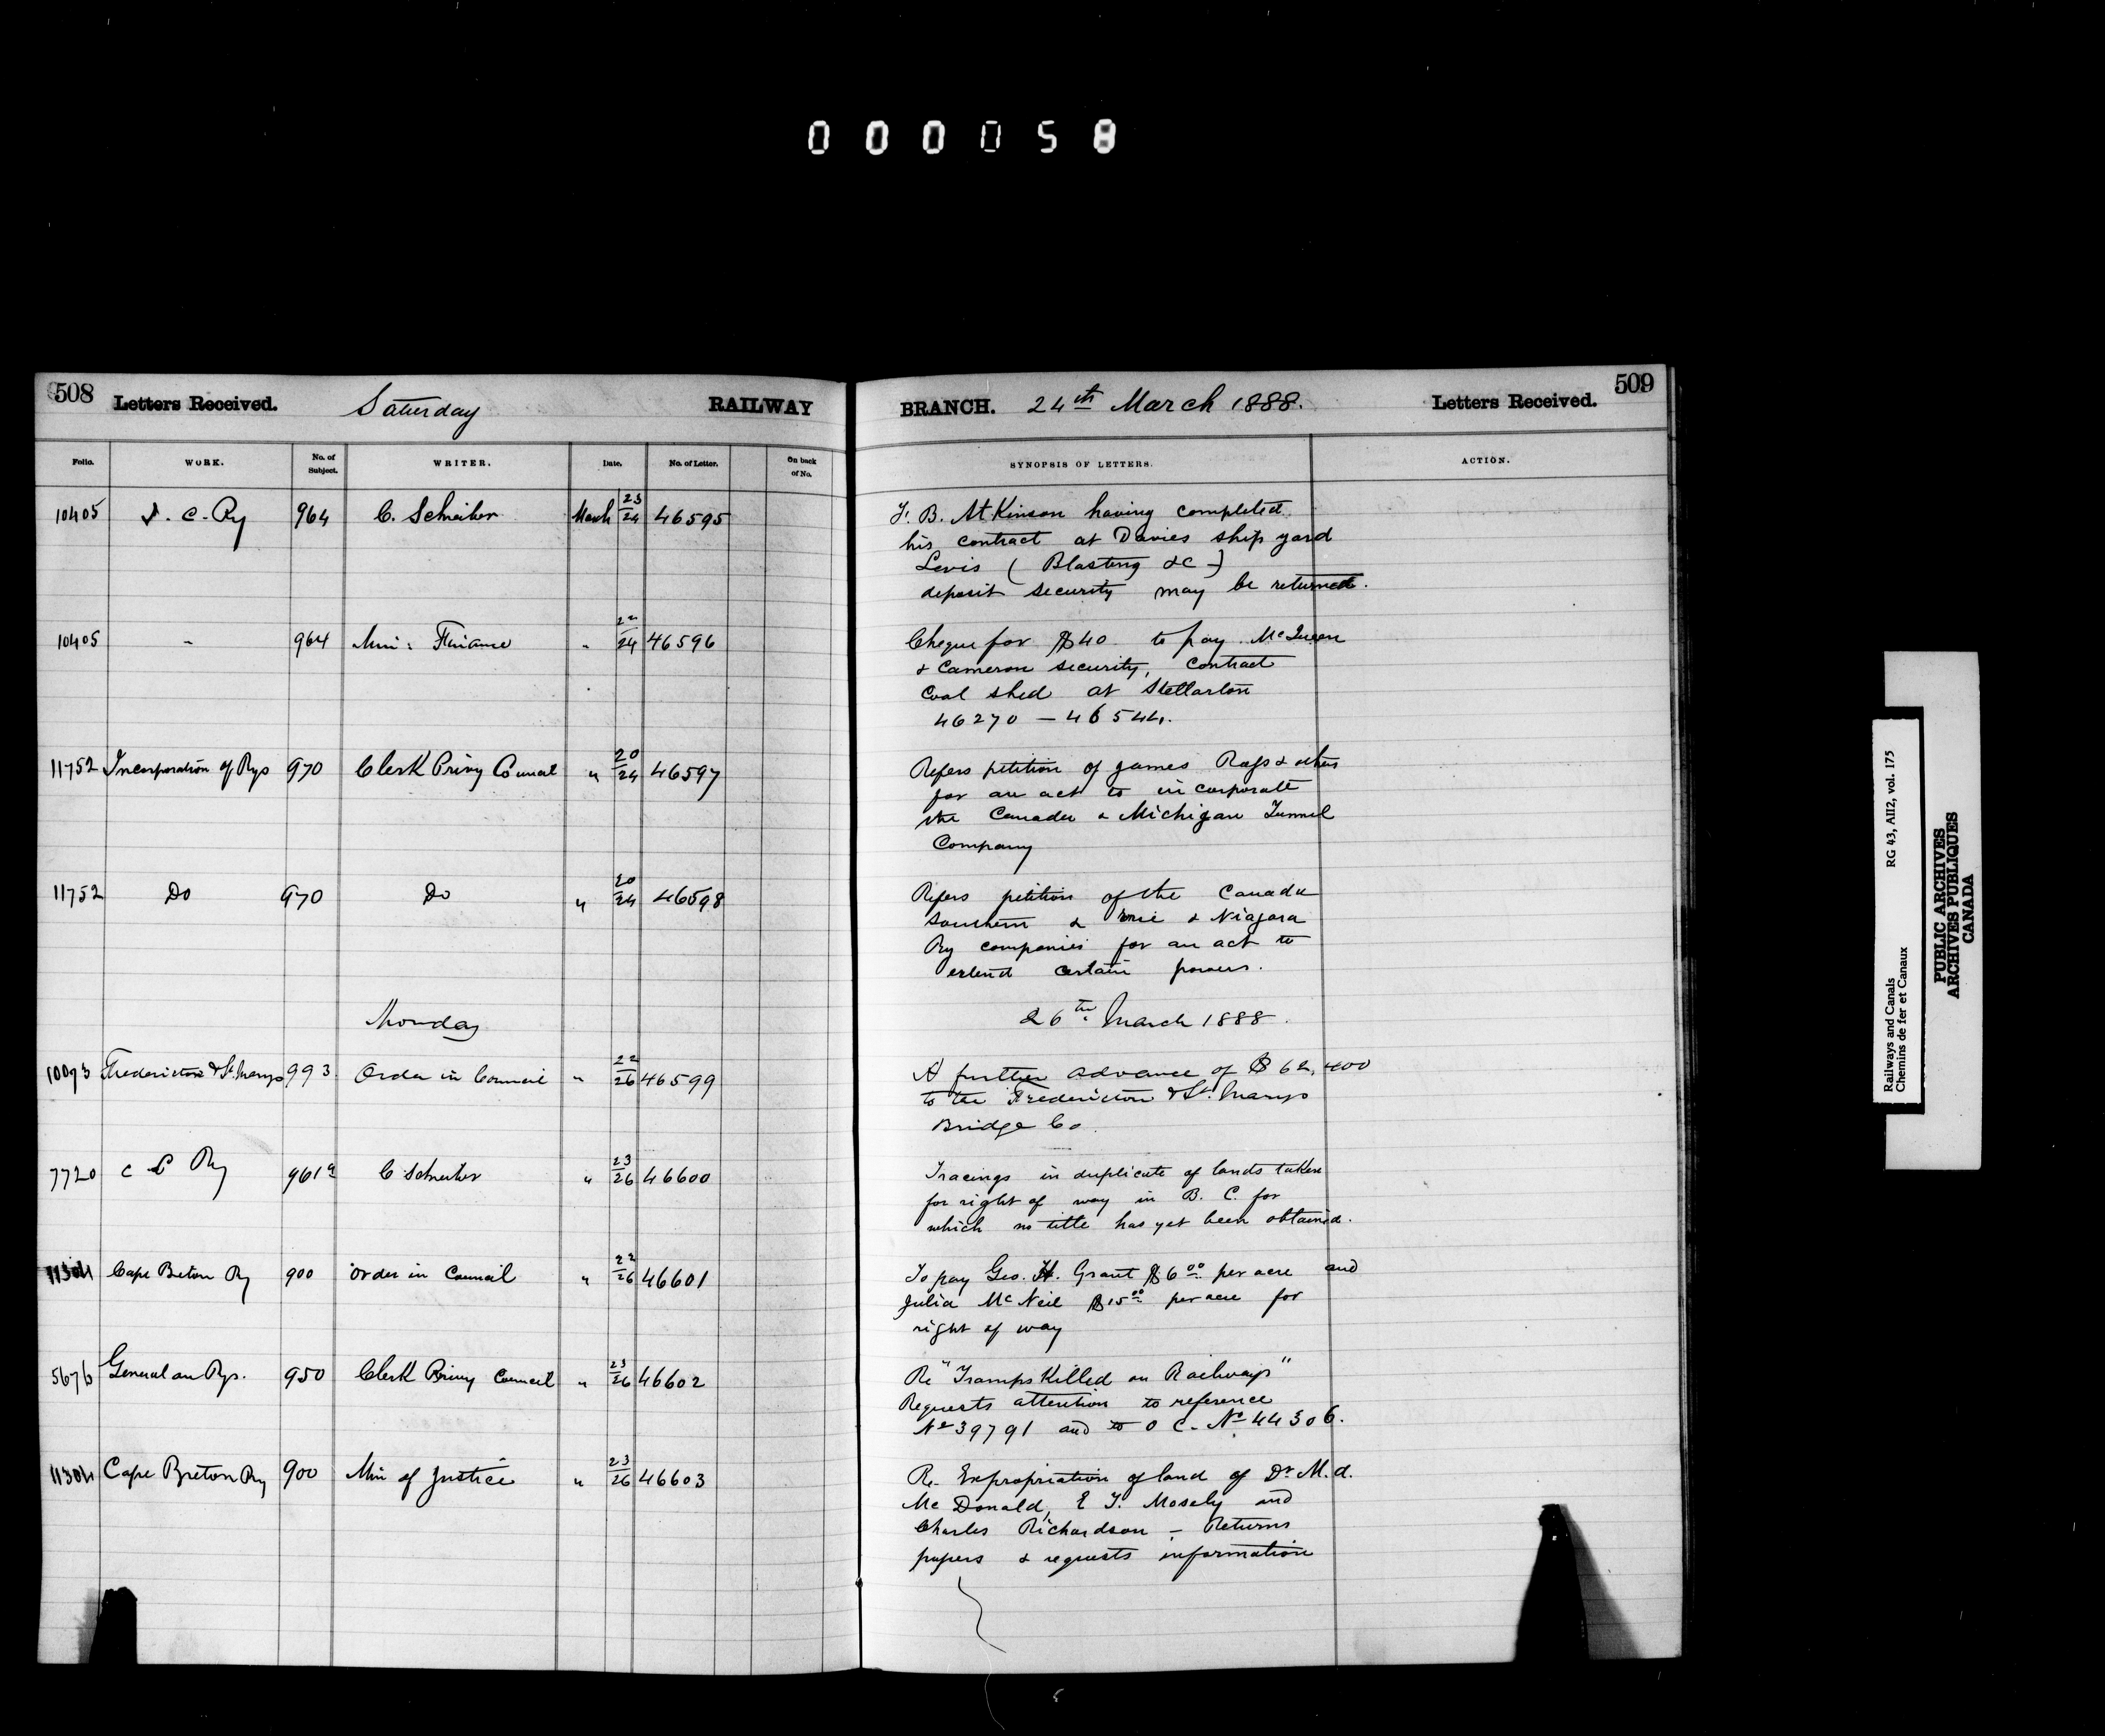 000058
508 Letters Received. Saturday RAILWAY
BRANCH. 24th March 1888. Letters Received. 509
Folio. WORK. No. of Subject. WRITER. Date. No. of Letter. On back of No.
SYNOPSIS OF LETTERS. ACTION.
10405 I. C. Ry 964 C. Schreiber March 23/24 46595
T. B. Atkinson having completed
his contract at Davies ship yard
Levis ( Blasting &c )
deposit security may be returned.
10405 " 964 Min: Finance " 22/24 46596
Cheque for $40 to pay McQueen
& Cameron security, contract
Coal shed at Stellarton
46270 — 46544.
11752 Incorporation of Rys 970 Clerk Privy Council " 20/24 46597
Refers petition of James Ross & others
for an act to incorporate
the Canada & Michigan Tunnel
Company
11752 Do 970 Do " 20/24 46598
Refers petition of the Canada
Southern & Erie & Niagara
Ry companies for an act to
extend certain powers.
Monday
26th March 1888.
10093 Fredericton & St. Marys 993 Order in Council " 22/26 46599
A further advance of $62,400
to the Fredericton & St. Marys
Bridge Co
7720 C P Ry 961a C Schreiber " 23/26 46600
Tracings in duplicate of lands taken
for right of way in B. C. for
which no title has yet been obtained.
11304 Cape Breton Ry 900 Order in Council " 22/26 46601
To pay Geo. H. Grant $6.00 per acre and
Julia McNeil $15.00 per acre for
right of way
5676 General on Rys. 950 Clerk Privy Council " 23/26 46602
Re "Tramps Killed on Railways"
Requests attention to reference
No 39791 and to O C. No 44306.
11304 Cape Breton Ry 900 Min of Justice " 23/26 46603
Re Expropriation of land of Dr M. d.
McDonald, E T. Mosely and
Charles Richardson - Returns
papers & requests information
Railways and Canals RG 43, AII2, vol. 175
Chemins de fer et Canaux
PUBLIC ARCHIVES
ARCHIVES PUBLIQUES
CANADA